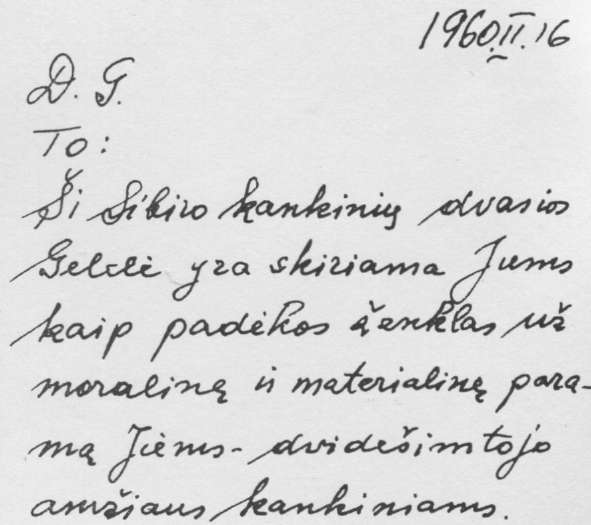 1960.II.16
D. G.
To:
Ši Sibiro kankinių dvasios
Gėlelė yra skiriama Jums
kaip padėkos ženklas už
moralinę ir materialinę para-
mą Jiems - dvidešimtojo
amžiaus kankiniams.